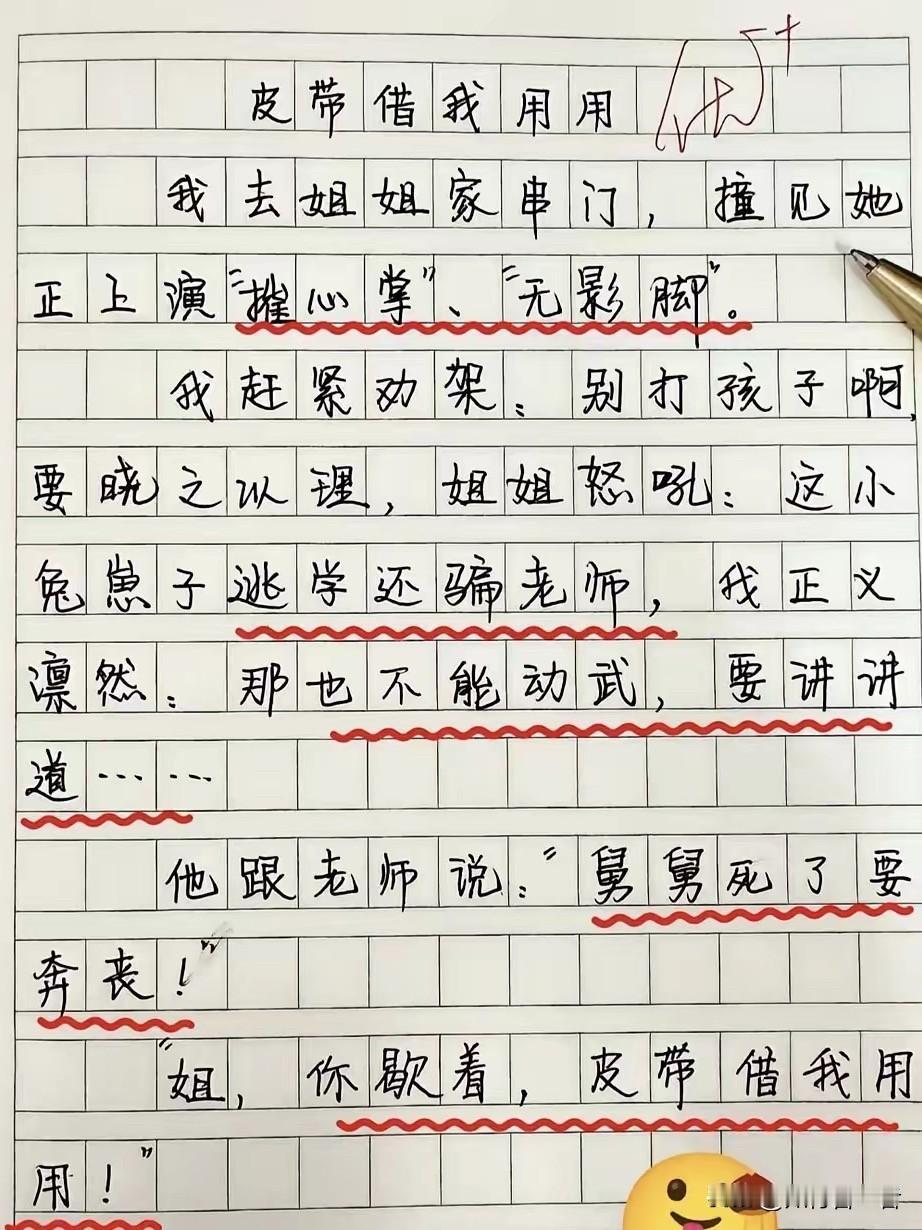 皮带借我用用
优+
我去姐姐家串门，撞见她
正上演"摧心掌"、"无影脚"。
我赶紧劝架：别打孩子啊，
要晓之以理，姐姐怒吼：这小
兔崽子逃学还骗老师，我正义
凛然：那也不能动武，要讲讲
道……
他跟老师说："舅舅死了要
奔丧！"
"姐，你歇着，皮带借我用
用！"